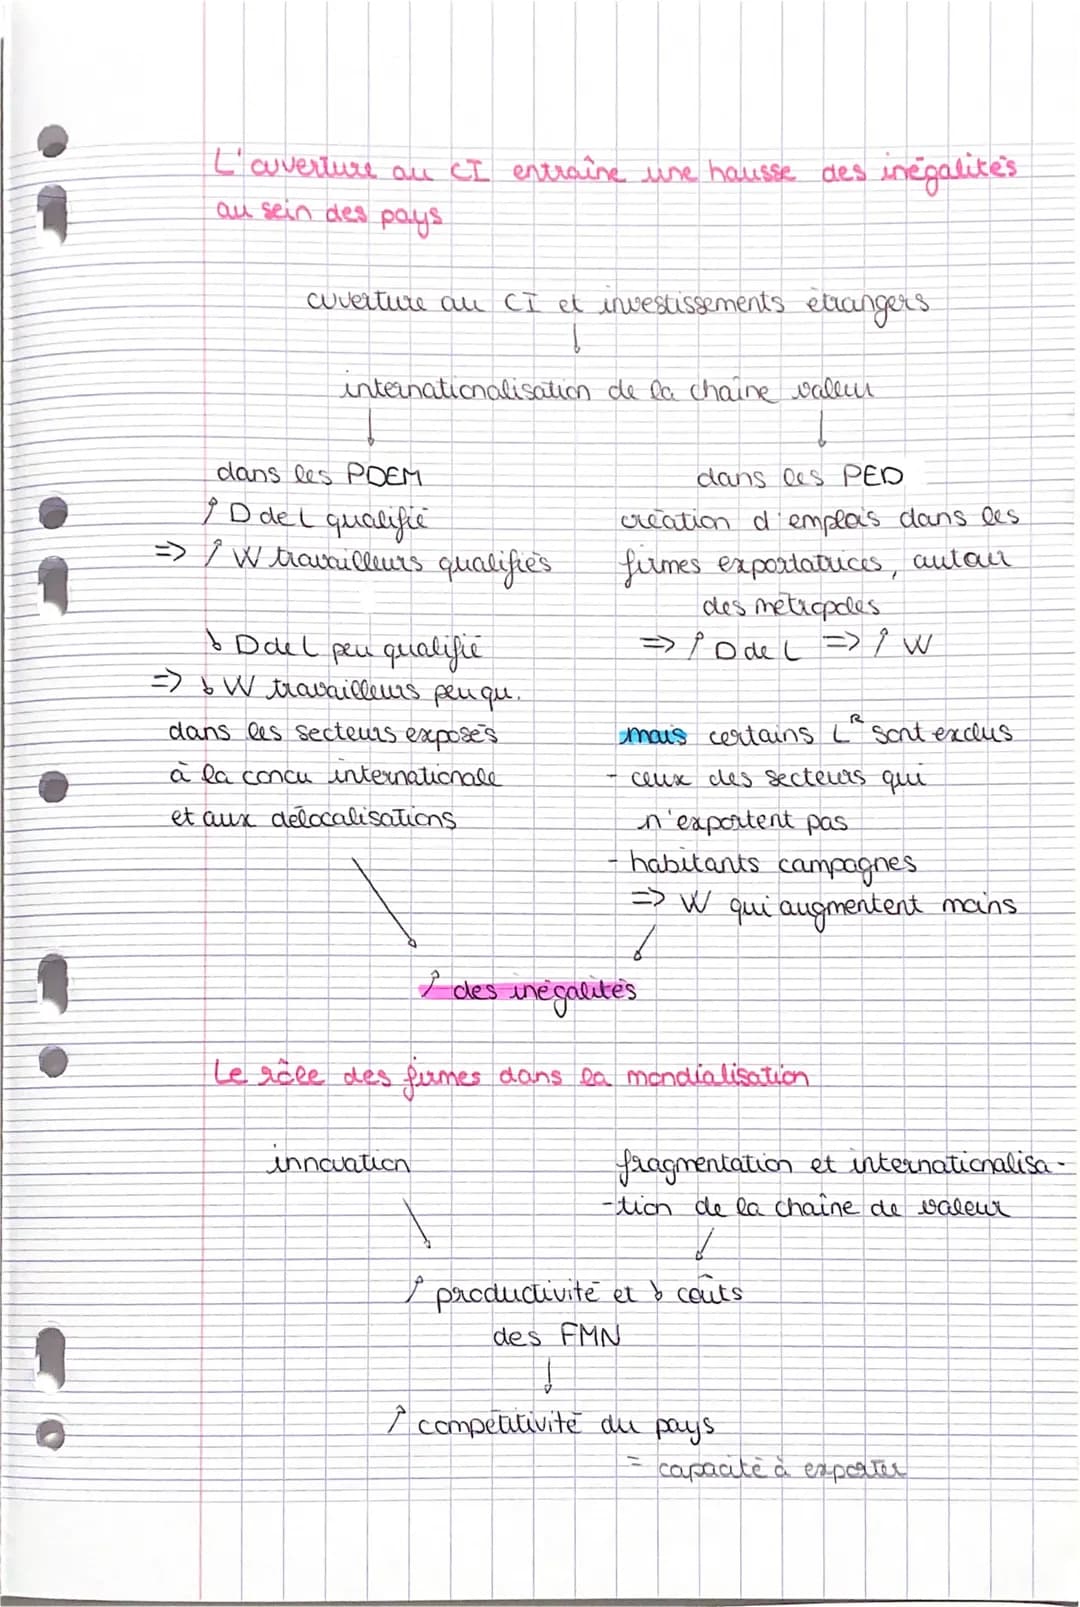 L'ouverture au CI entraîne une hausse des inégalités
au sein des pays
ouverture au CI et investissements étrangers
↓
internationalisation de la chaîne valeur
↓ ↓
dans les PDEM
↑ D de L qualifié
=> ↑ W travailleurs qualifiés
↓ D de L peu qualifié
=> ↓ W travailleurs peu qu.
dans les secteurs exposés
à la concu internationale
et aux délocalisations
dans les PED
création d'emplois dans les
firmes exportatrices, autour
des métropoles
=> ↑ D de L => ↑ W
mais certains L^R sont exclus
- ceux des secteurs qui
n'exportent pas
- habitants campagnes
=> W qui augmentent moins
↑ des inégalités
Le rôle des firmes dans la mondialisation
innovation
fragmentation et internationalisa-
-tion de la chaîne de valeur
↑ productivité et ↓ coûts
des FMN
↓
↑ compétitivité du pays
= capacité à exporter